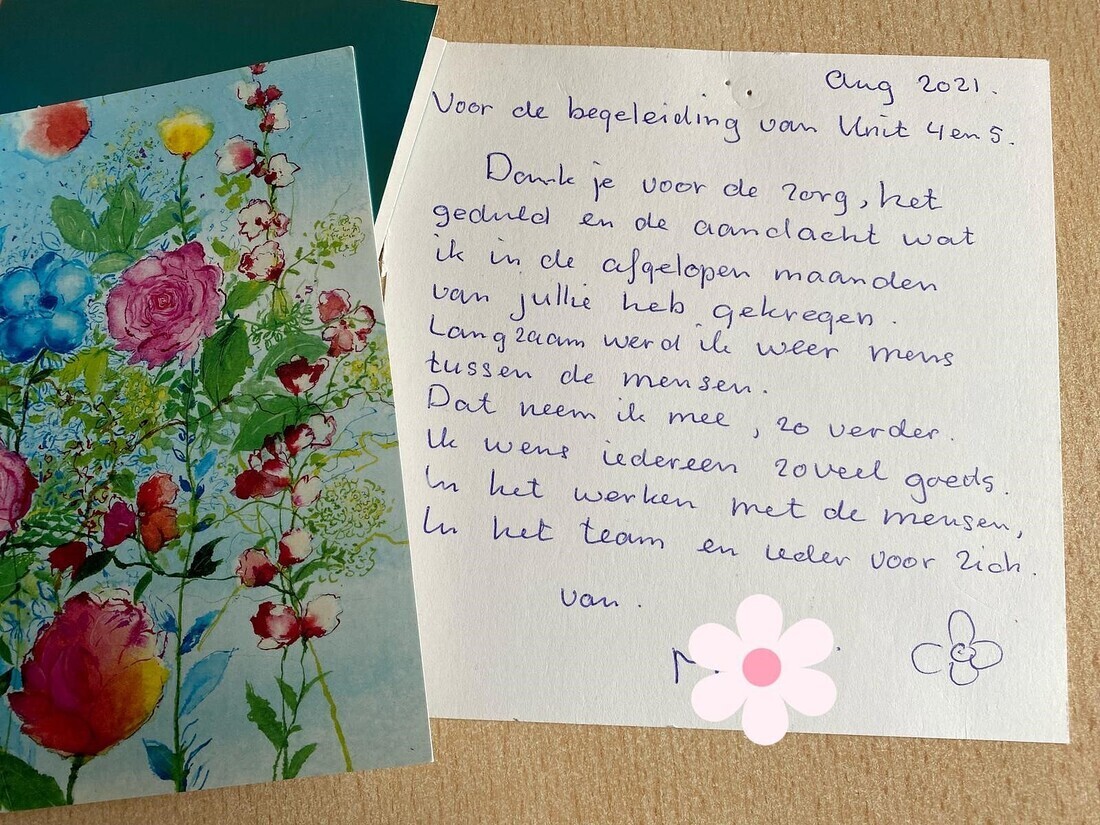 Aug 2021.
Voor de begeleiding van Unit 4 en 5.
Dank je voor de zorg, het
geduld en de aandacht wat
ik in de afgelopen maanden
van jullie heb gekregen.
Langzaam werd ik weer mens
tussen de mensen.
Dat neem ik mee, zo verder.
Ik wens iedereen zoveel goeds.
In het werken met de mensen,
In het team en ieder voor zich.
van.